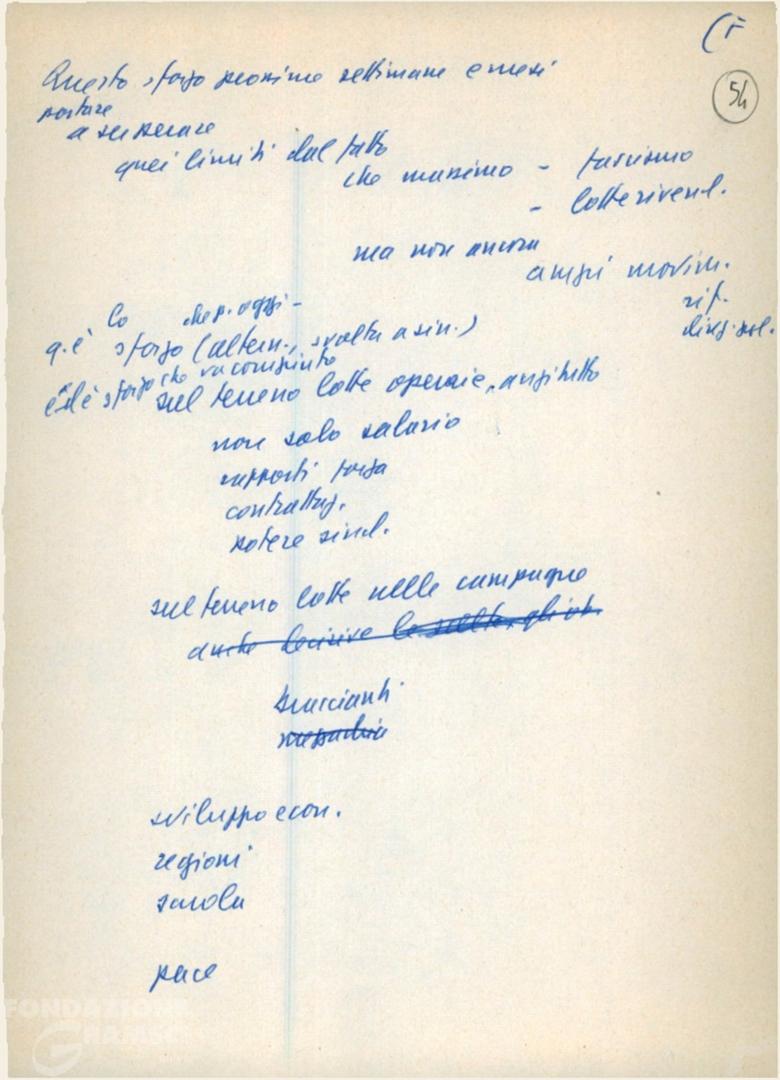 (F
54
Questo sforzo prossime settimane e mesi
portare
a superare
quei limiti dal fatto
che massimo - fascismo
- lotte rivend.
ma non ancora
ampi movim.
rif.
lo che p. oggi -
q. è sforzo (altern., svolta a sin.)
ed è sforzo che va compiuto
sul terreno lotte operaie, anzitutto
non solo salario
rapporti forza
contrattaz.
potere sind.
sul terreno lotte nelle campagne
anche decisive le scelte, gli ob.
braccianti
mezzadria
sviluppo econ.
regioni
scuola
pace
FONDAZIONE
GRAMSCI